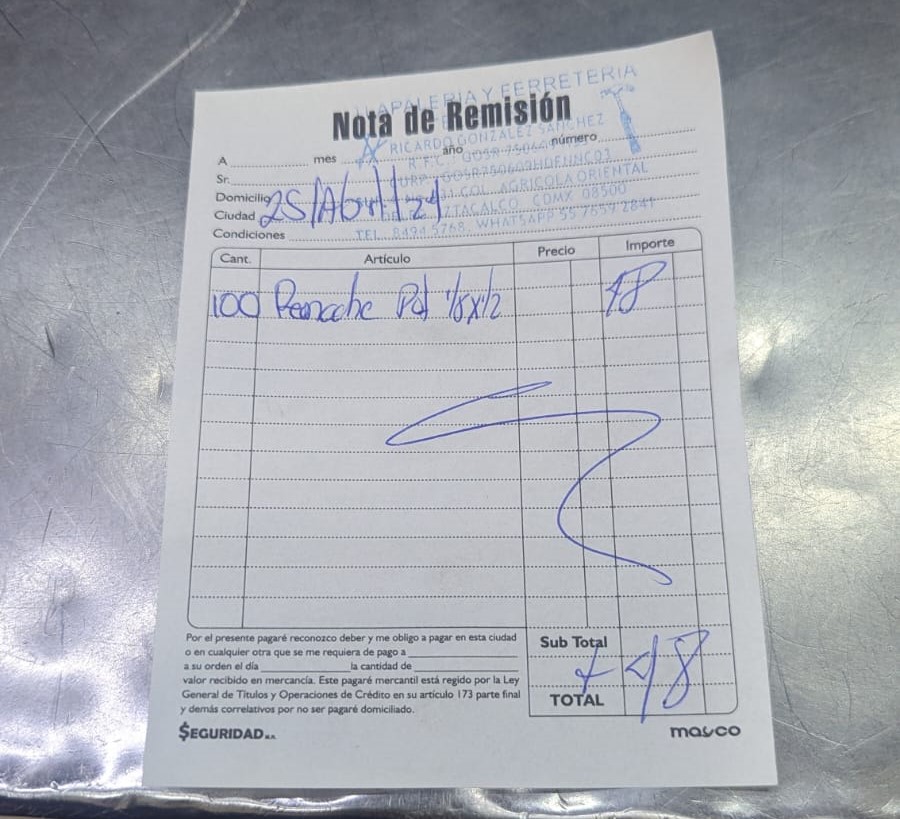 TLAPALERIA Y FERRETERIA
Nota de Remisión
RICARDO GONZALEZ SANCHEZ
A mes año número
Sr.
COL. AGRICOLA ORIENTAL
Domicilio
IZTACALCO, CDMX 08500
Ciudad 25/Abril/24
TEL. 8494 5768, WHATSAPP 55 7659 2841
Condiciones
Cant. Artículo Precio Importe
100 Pol 1/8x1/2 48
Por el presente pagaré reconozco deber y me obligo a pagar en esta ciudad
o en cualquier otra que se me requiera de pago a
a su orden el día la cantidad de
valor recibido en mercancía. Este pagaré mercantil está regido por la Ley
General de Títulos y Operaciones de Crédito en su artículo 173 parte final
y demás correlativos por no ser pagaré domiciliado.
Sub Total
48
TOTAL
$EGURIDAD M.R.
masco